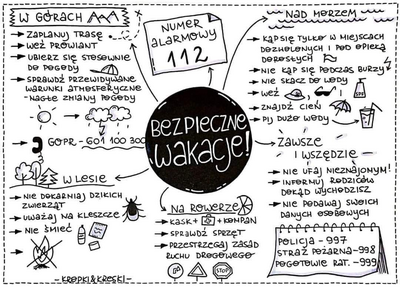 W GÓRACH
→ ZAPLANUJ TRASĘ
→ WEŹ PROWIANT
→ UBIERZ SIĘ STOSOWNIE
DO POGODY
→ SPRAWDŹ PRZEWIDYWANE
WARUNKI ATMOSFERYCZNE
- NAGŁE ZMIANY POGODY
GOPR - 601 100 300
NUMER
ALARMOWY
112
NAD MORZEM
→ KĄP SIĘ TYLKO W MIEJSCACH
DOZWOLONYCH I POD OPIEKĄ
DOROSŁYCH
→ NIE KĄP SIĘ PODCZAS BURZY
→ NIE SKACZ DO WODY
→ WEŹ
→ ZNAJDŹ CIEŃ
→ PIJ DUŻO WODY
BEZPIECZNE
WAKACJE!
W LESIE
→ NIE DOKARMIAJ DZIKICH
ZWIERZĄT
→ UWAŻAJ NA KLESZCZE
→ NIE ŚMIEĆ
- KROPKI&KRESKI -
NA ROWERZE
→ KASK + + KOMPAN
→ SPRAWDŹ SPRZĘT
→ PRZESTRZEGAJ ZASAD
RUCHU DROGOWEGO
STOP
ZAWSZE
I WSZĘDZIE
→ NIE UFAJ NIEZNAJOMYM!
→ INFORMUJ RODZICÓW
DOKĄD WYCHODZISZ
→ NIE PODAWAJ SWOICH
DANYCH OSOBOWYCH
POLICJA - 997
STRAŻ POŻARNA - 998
POGOTOWIE RAT. - 999